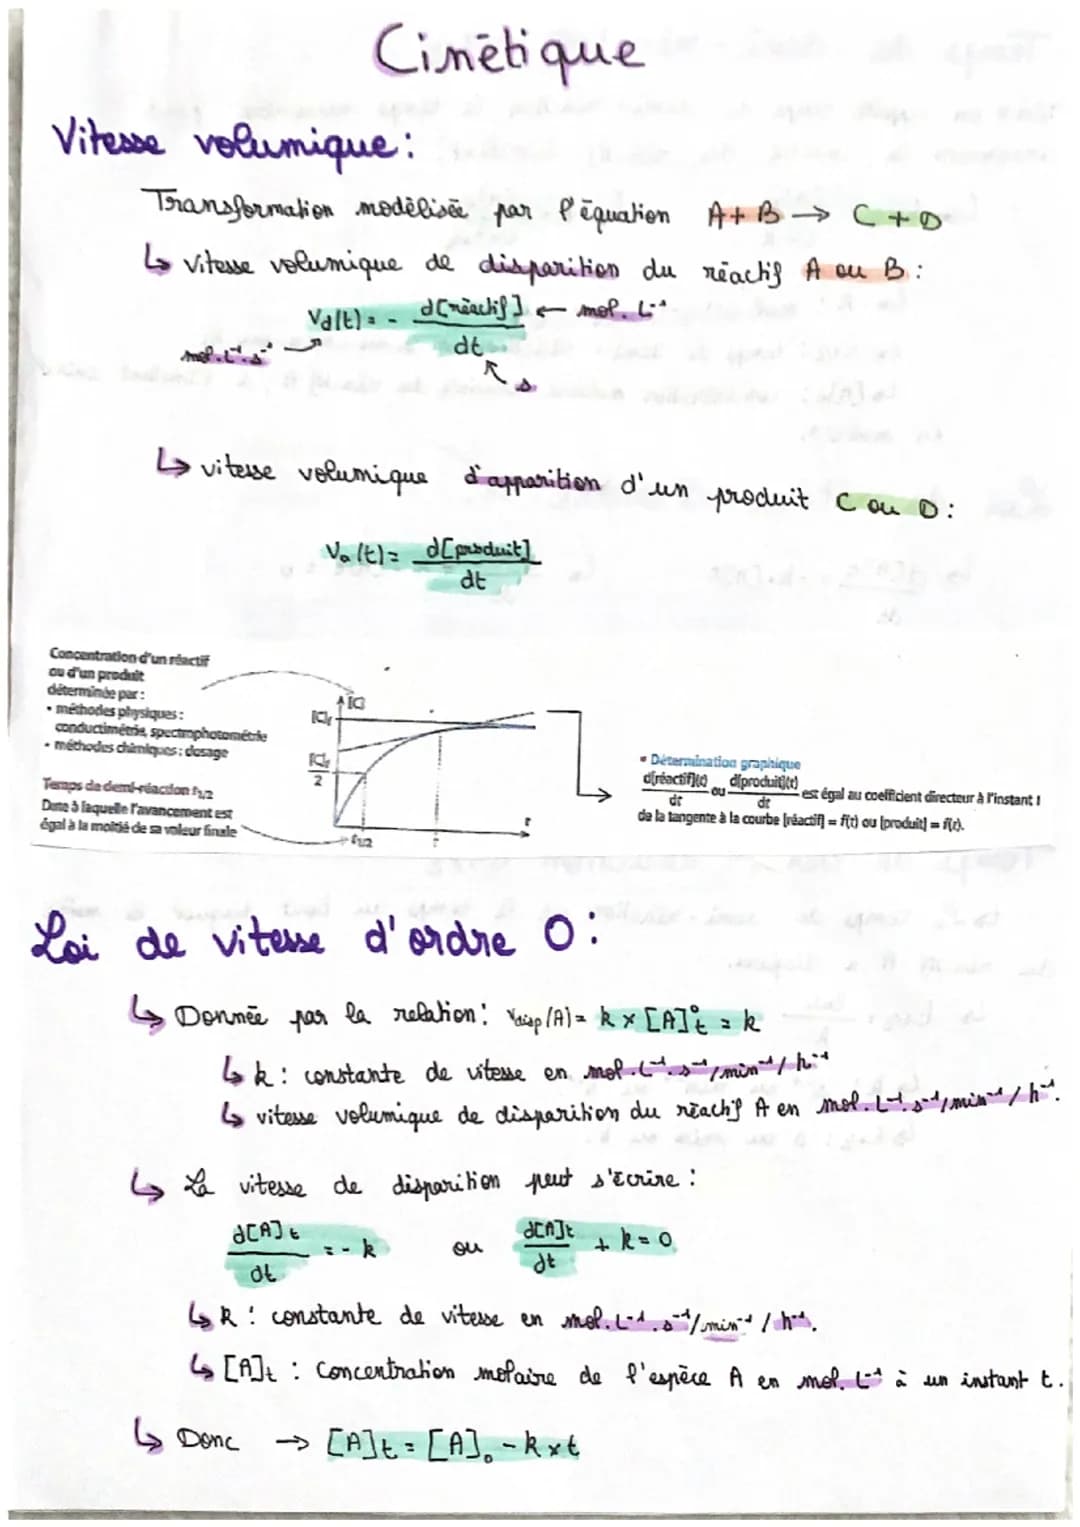 Cinétique
Vitesse volumique :
Transformation modélisée par l'équation A + B → C + D
↳ vitesse volumique de disparition du réactif A ou B :
Vd(t) = - d[réactif] / dt ← mol. L⁻¹
mol.L⁻¹.s⁻¹
s
↳ vitesse volumique d'apparition d'un produit C ou D :
Va(t) = d[produit] / dt
Concentration d'un réactif
ou d'un produit
déterminée par :
• méthodes physiques :
conductimétrie, spectrophotométrie
• méthodes chimiques : dosage
Temps de demi-réaction t1/2
Date à laquelle l'avancement est
égal à la moitié de sa valeur finale
[C]
[C]f
[C]f / 2
t1/2
t
t
• Détermination graphique
d[réactif](t) / dt ou d[produit](t) / dt est égal au coefficient directeur à l'instant t
de la tangente à la courbe [réactif] = f(t) ou [produit] = f(t).
Loi de vitesse d'ordre 0 :
↳ Donnée par la relation : Vdisp(A) = k × [A]⁰t = k
↳ k : constante de vitesse en mol.L⁻¹.s⁻¹/min⁻¹/h⁻¹
↳ vitesse volumique de disparition du réactif A en mol.L⁻¹.s⁻¹/min⁻¹/h⁻¹.
↳ La vitesse de disparition peut s'écrire :
d[A]t / dt = - k ou d[A]t / dt + k = 0
↳ k : constante de vitesse en mol.L⁻¹.s⁻¹/min⁻¹/h⁻¹.
↳ [A]t : Concentration molaire de l'espèce A en mol.L⁻¹ à un instant t.
↳ Donc → [A]t = [A]₀ - k×t